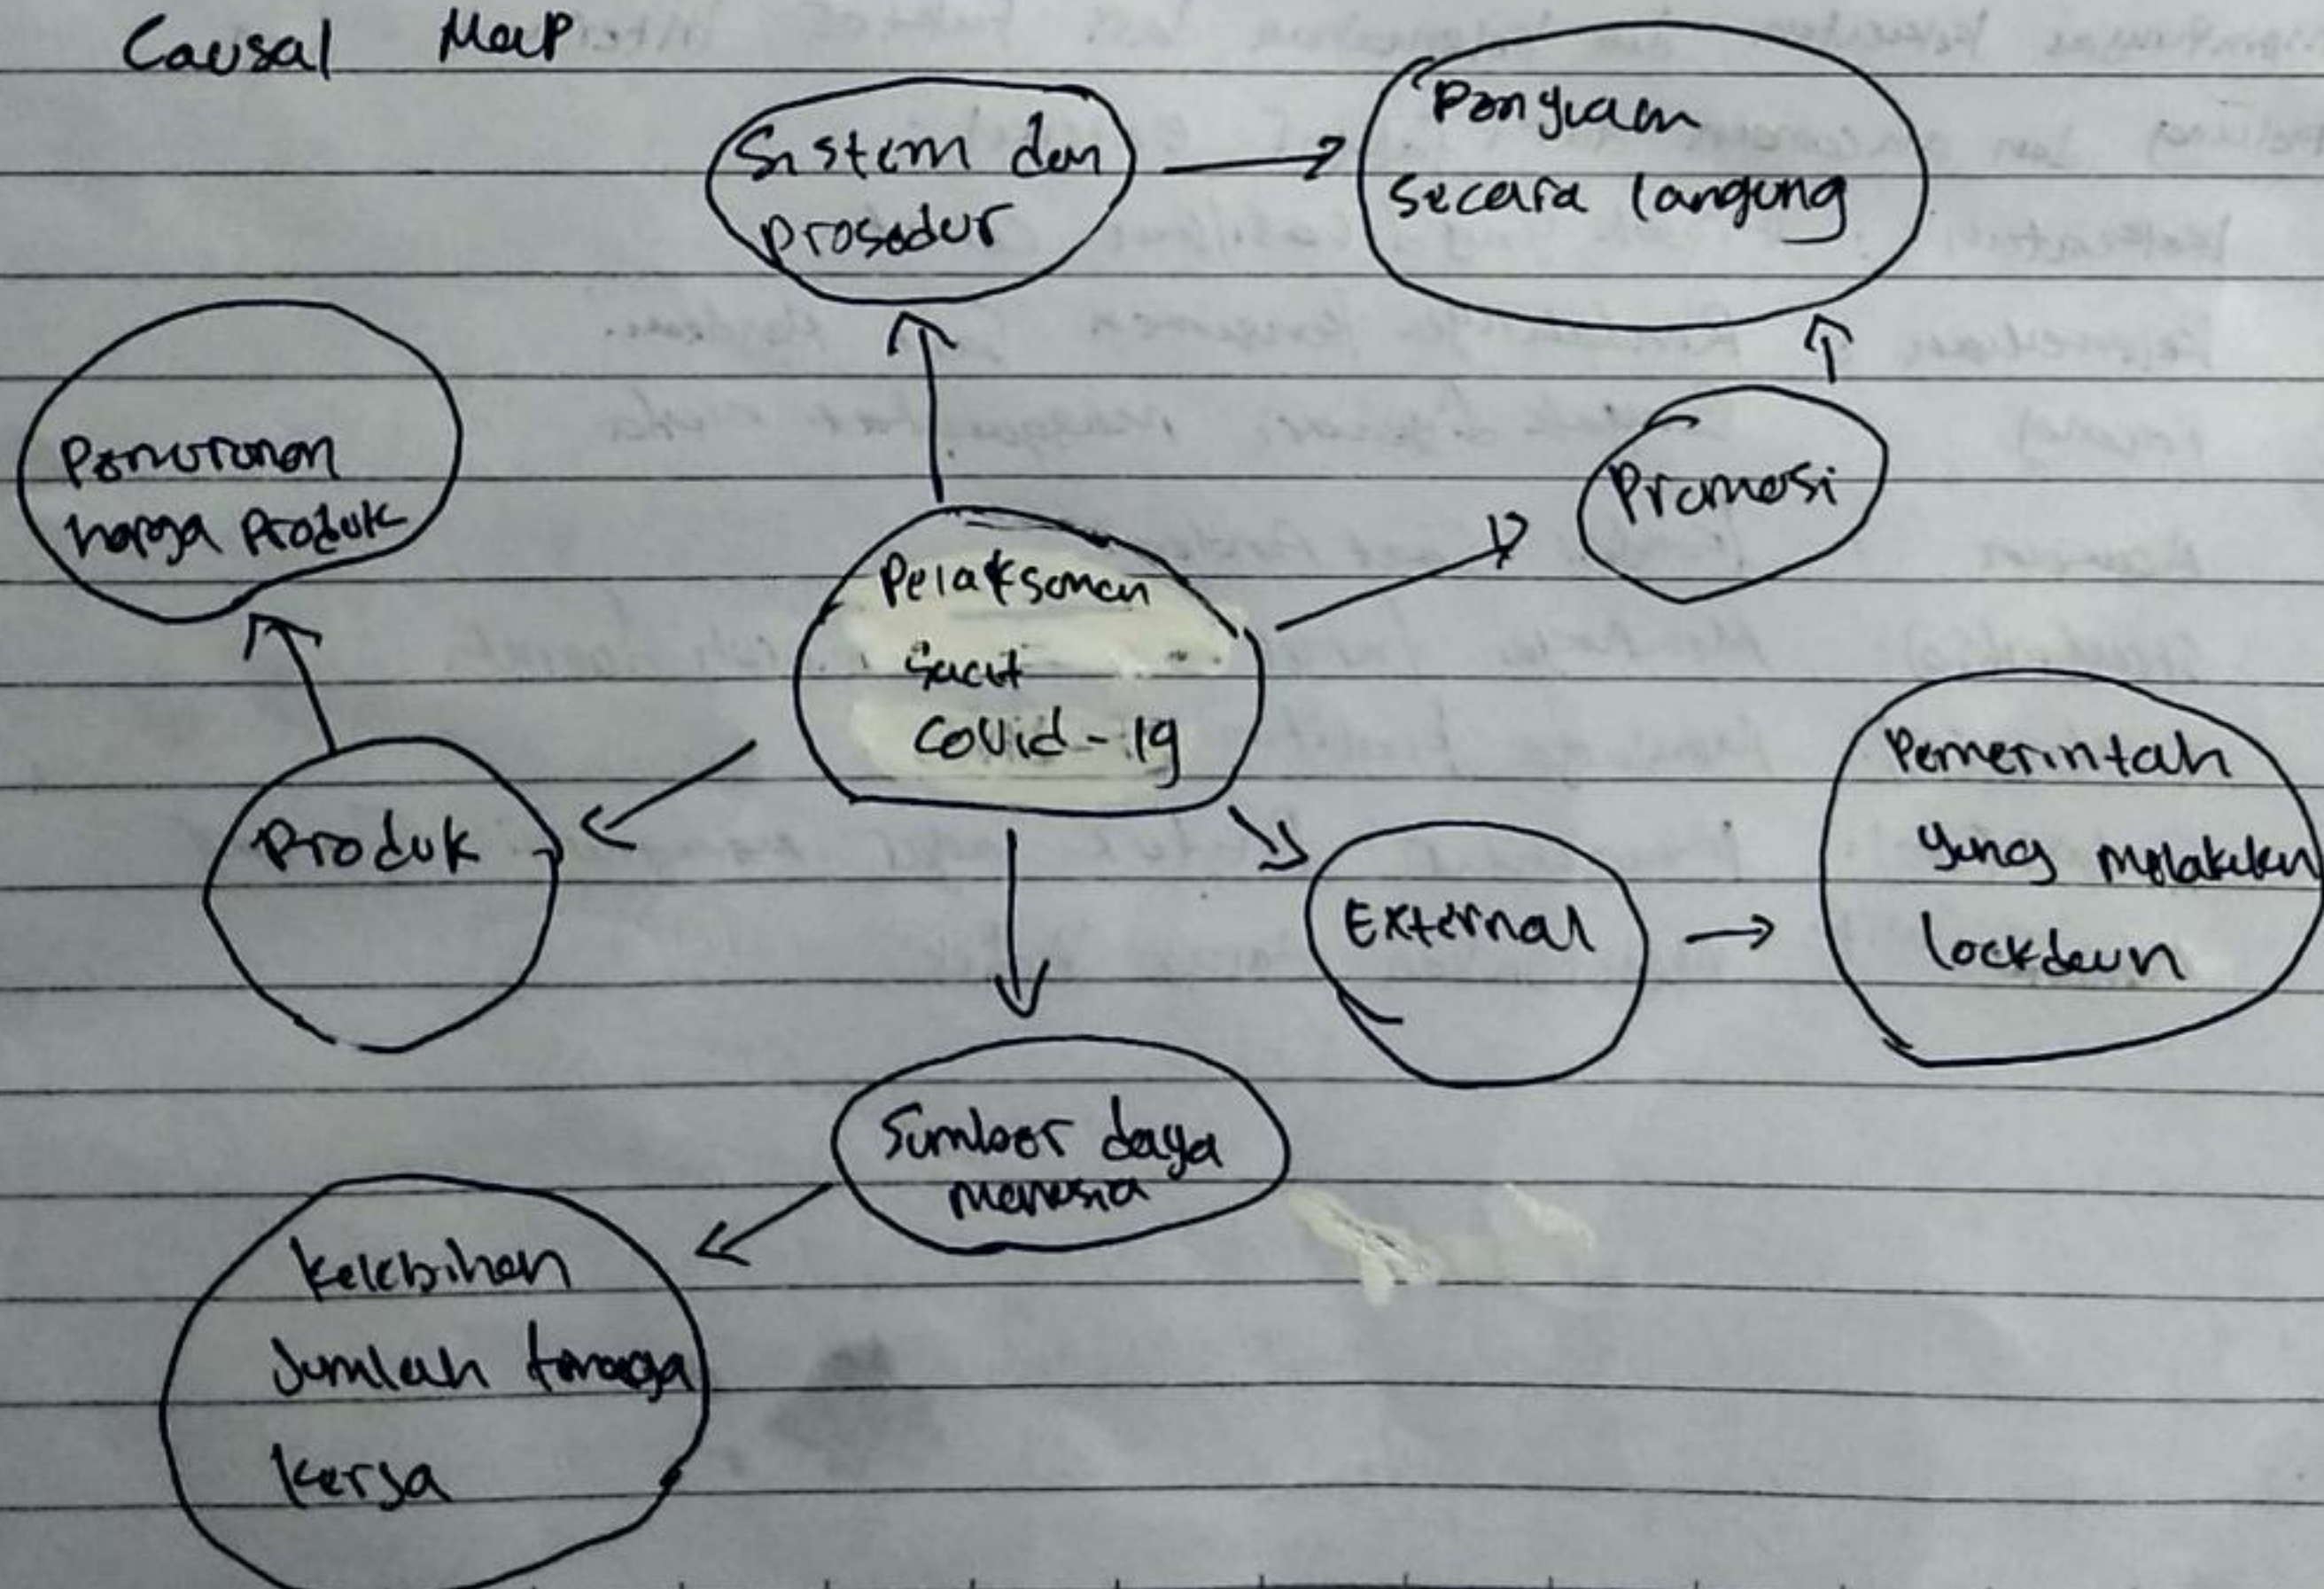 Causal Map
Sistem dan
prosedur
Penjuam
secara langung
Penurunan
harga Produk
Promosi
Pelaksanan
Saat
Covid-19
Pemerintah
yang melakukan
lockdown
Produk
External
Sumber daya
manusia
kelebihan
Jumlah tenaga
kerja